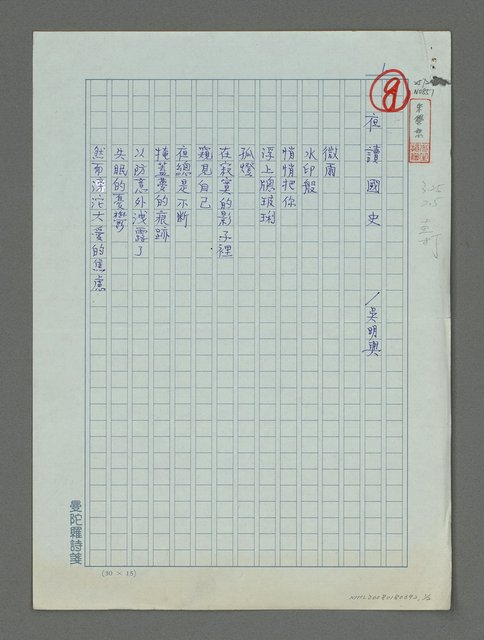 夜讀國史
/吳明興
微雨
水印般
悄悄把你
浮上牕玻琍
孤燈
在寂寞的影子裡
窺見自己
夜總是不斷
掩蓋夢的痕跡
以防意外洩露了
失眠的憂鬱
然而滂沱大愛的焦慮
曼陀羅詩箋
(30 × 15)